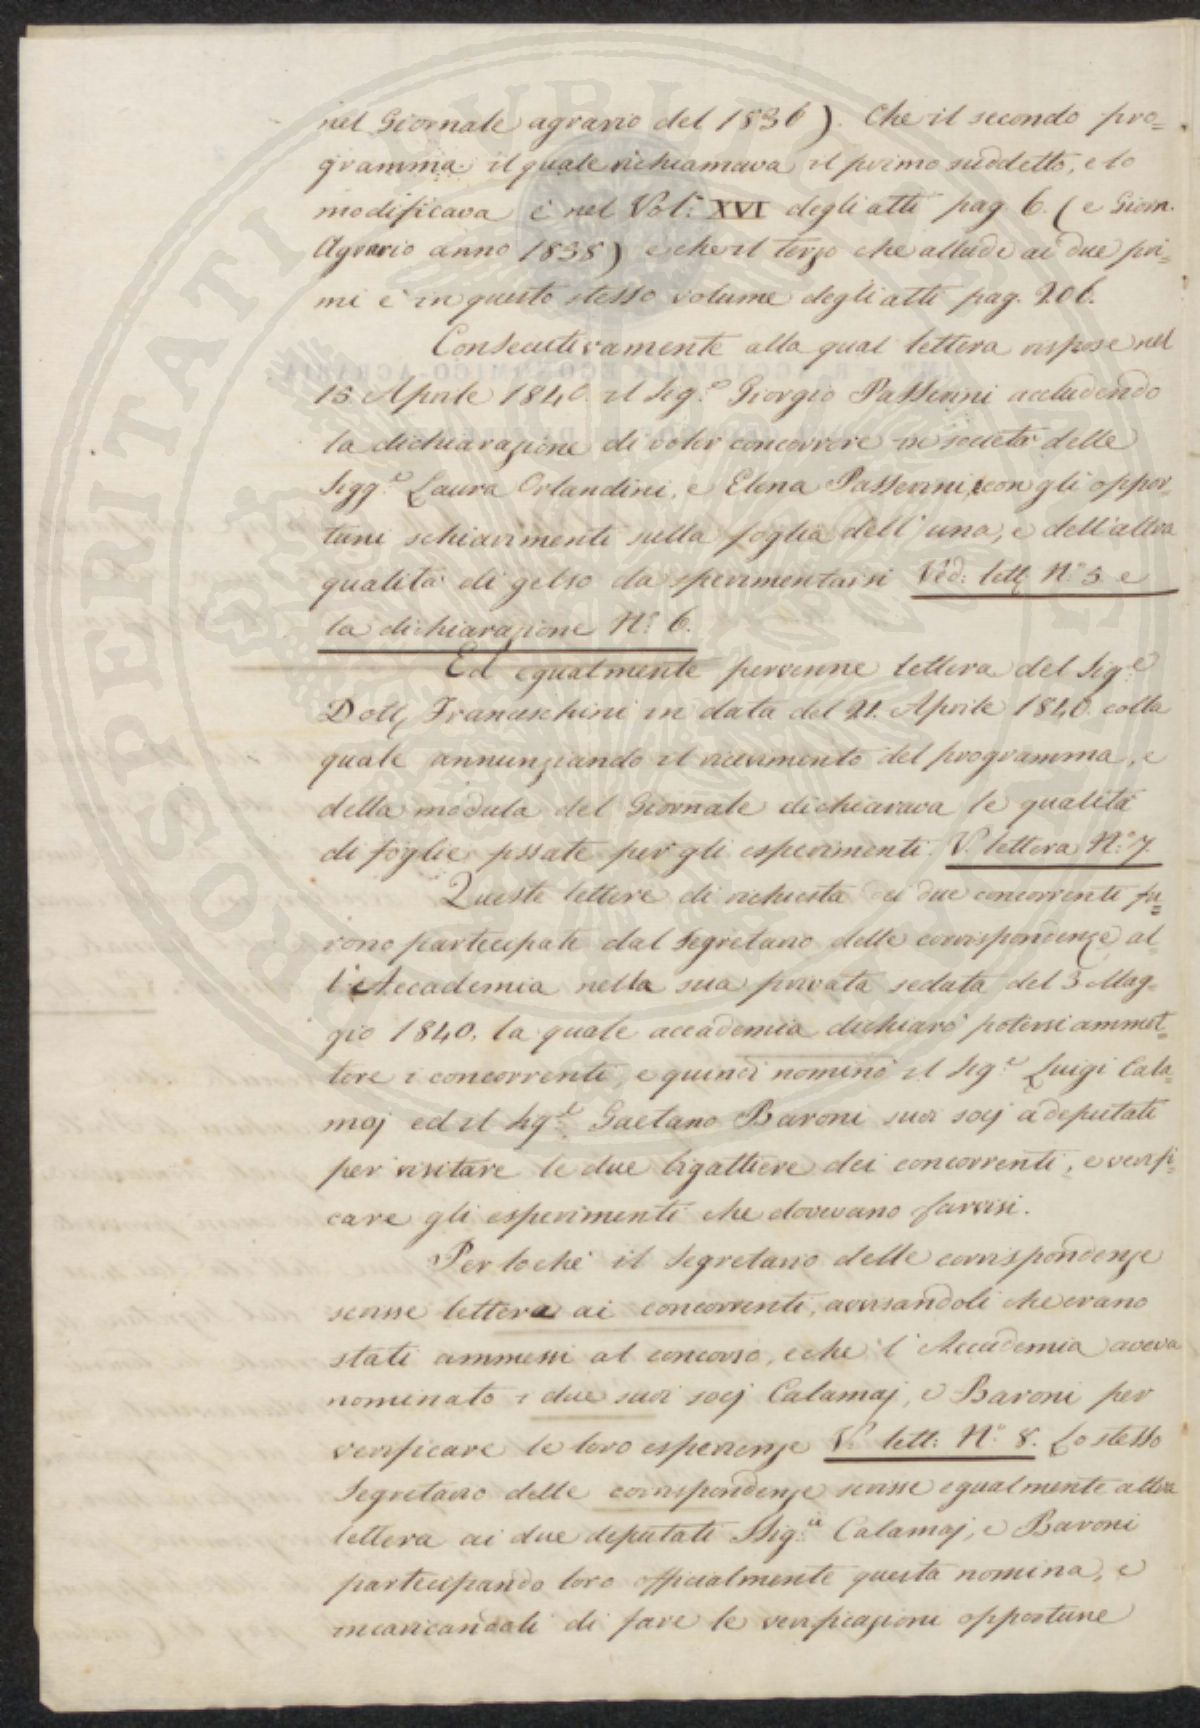 nel Giornale agrario del 1836). Che il secondo pro=
gramma il quale richiamava il primo suddetto, e lo
modificava è nel Vol: XVI degli atti pag 6. (e Giorn.
Agrario anno 1838) e che il terzo che allude ai due pri=
mi è in questo stesso volume degli atti pag. 206.
Consecutivamente alla qual lettera rispose nel
15 Aprile 1840. il Sig.e Giorgio Passerini accludendo
la dichiarazione di voler concorrere in società delle
Sigg.e Laura Orlandini, e Elena Passerini, con gli oppor=
tuni schiarimenti sulla foglia dell'una, e dell'altra
qualità di gelso da sperimentarsi Ved: lett: N.o 5. e
la dichiarazione N.o 6.
Ed egualmente pervenne lettera del Sig.e
Dott. Franceschini in data del 21. Aprile 1840. colla
quale annunziando il ricevimento del programma, e
della modula del Giornale dichiarava le qualità
di foglie pssate per gli esperimenti. V. lettera N.o 7.
Queste lettere di richiesta dei due concorrenti fu=
rono partecipate dal Segretario delle corrispondenze al=
l'Accademia nella sua privata seduta del 3 Mag=
gio 1840. la quale accademia dichiarò potersi ammet=
tere i concorrenti, e quindi nominò il Sig.e Luigi Cala=
maj ed il Sig.e Gaetano Baroni suoi socj a deputati
per visitare le due bigattiere dei concorrenti, e verifi=
care gli esperimenti che dovevano farvisi.
Per lochè il Segretario delle corrispondenze
scrisse lettera ai concorrenti, avvisandoli che erano
stati ammessi al concorso, e che l'Accademia aveva
nominato i due suoi socj Calamaj, e Baroni per
verificare le loro esperienze V. lett: N.o 8. Lo stesso
Segretario delle corrispondenze scrisse egualmente altra
lettera ai due deputati SSig.ri Calamaj, e Baroni
partecipando loro officialmente questa nomina, e
incaricandoli di fare le verificazioni opportune
PROSPERITATI PUBLICAE
IMP. E R. ACCADEMIA ECONOMICO-AGRARIA